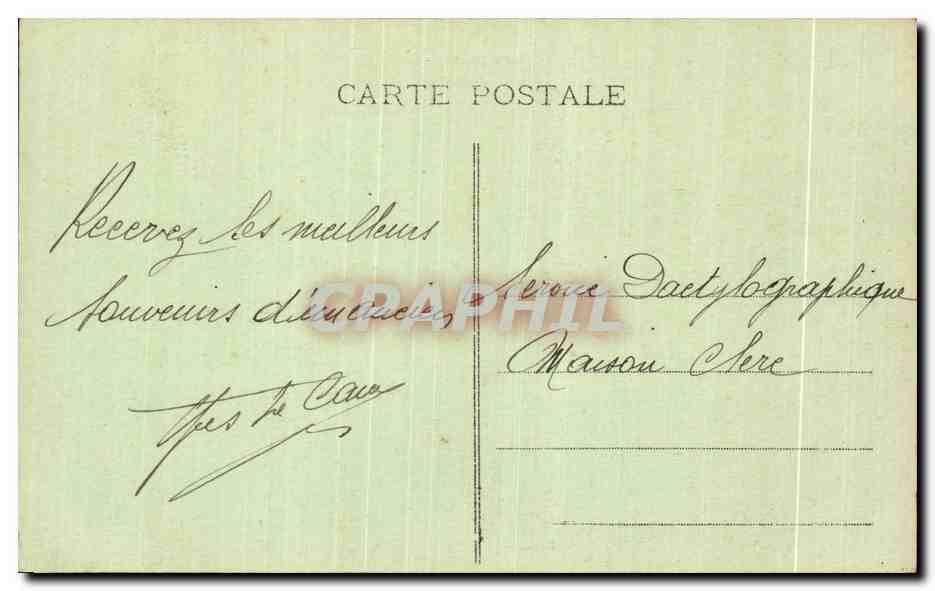 CARTE POSTALE
Recevez les meilleurs
souvenirs d'un ancien
Yves Le
Service Dactylographique
Maison Clerc
CPAPHIL